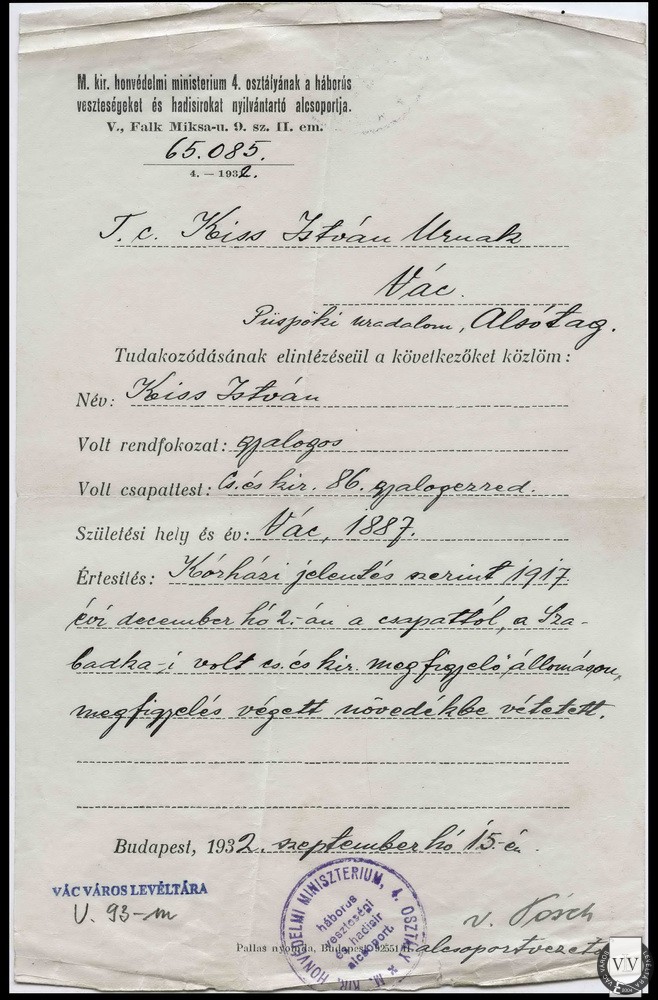 M. kir. honvédelmi ministerium 4. osztályának a háborús
veszteségeket és hadisirokat nyilvántartó alcsoportja.
V., Falk Miksa-u. 9. sz. II. em.
65.085.
4. — 1932.
T. c. Kiss István Urnak
Vác.
Püspöki uradalom, Alsótag.
Tudakozódásának elintézéseül a következőket közlöm:
Név: Kiss István
Volt rendfokozat: gyalogos
Volt csapattest: cs. és kir. 86. gyalogezred.
Születési hely és év: Vác, 1887.
Értesítés: Kórházi jelentés szerint 1917.
évi december hó 2.-án a csapattól, a Sza-
badka-i volt cs. és kir. megfigyelő állomáson,
megfigyelés végett növedékbe vétetett.
Budapest, 1932. szeptember hó 15.-én.
VÁC VÁROS LEVÉLTÁRA
V. 93-m
M. KIR. HONVÉDELMI MINISZTERIUM, 4. OSZTÁLY
háborús
veszteségi
és hadisir
alcsoport.
alcsoportvezető
Pallas nyomda, Budapest